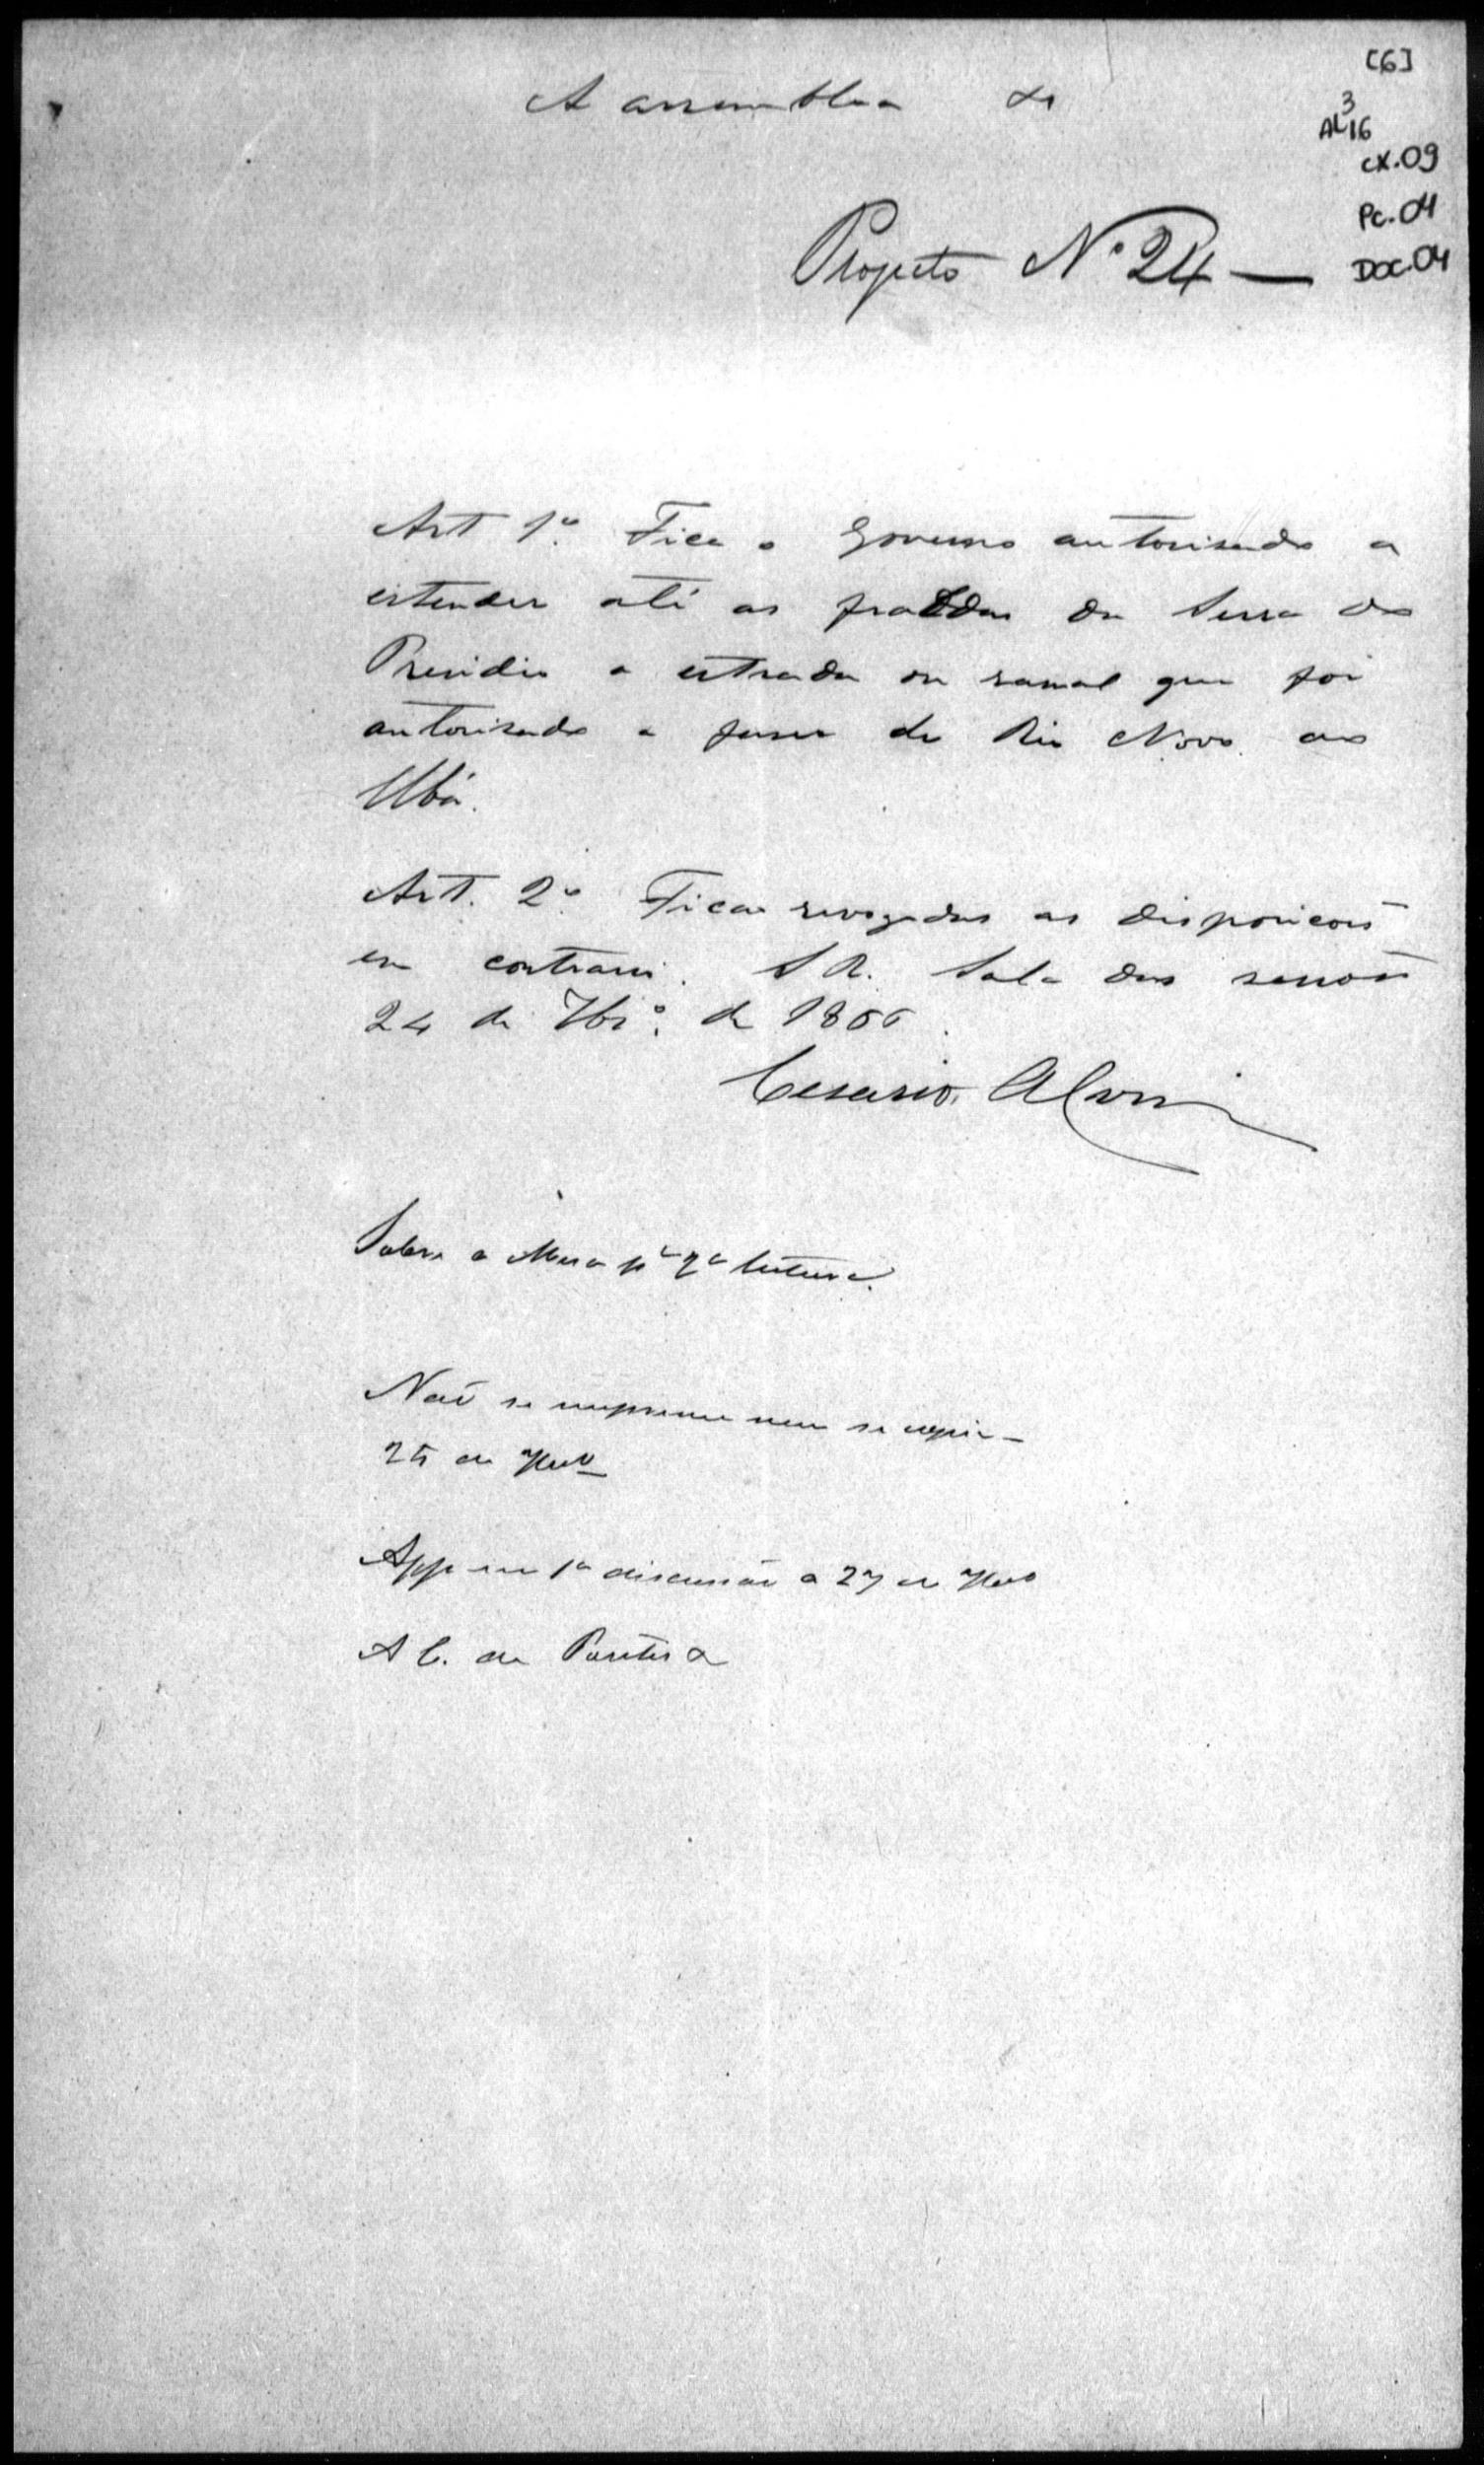 [6]
A assemblea &
AL 3 16
cx.09
Pc.04
Doc.04
Projecto Nº 24 —
Art 1º. Fica o Governo autorisado a
estender até as fraldas da Serra do
Presidio a estrada ou ramal que foi
autorisado a faser do Rio Novo ao
Ubá.
Art. 2º. Ficão revogadas as disposicoẽs
em contrario. S R. Sala das sessoẽs
24 de 7brº. de 1866.
Cesario Alvim
Sobre a Mesa pª 2ª leitura.
Naõ se imprime nem se copia —
25 de 7brº
App em 1ª discussão a 27 de 7brº
A C. de Pontes &